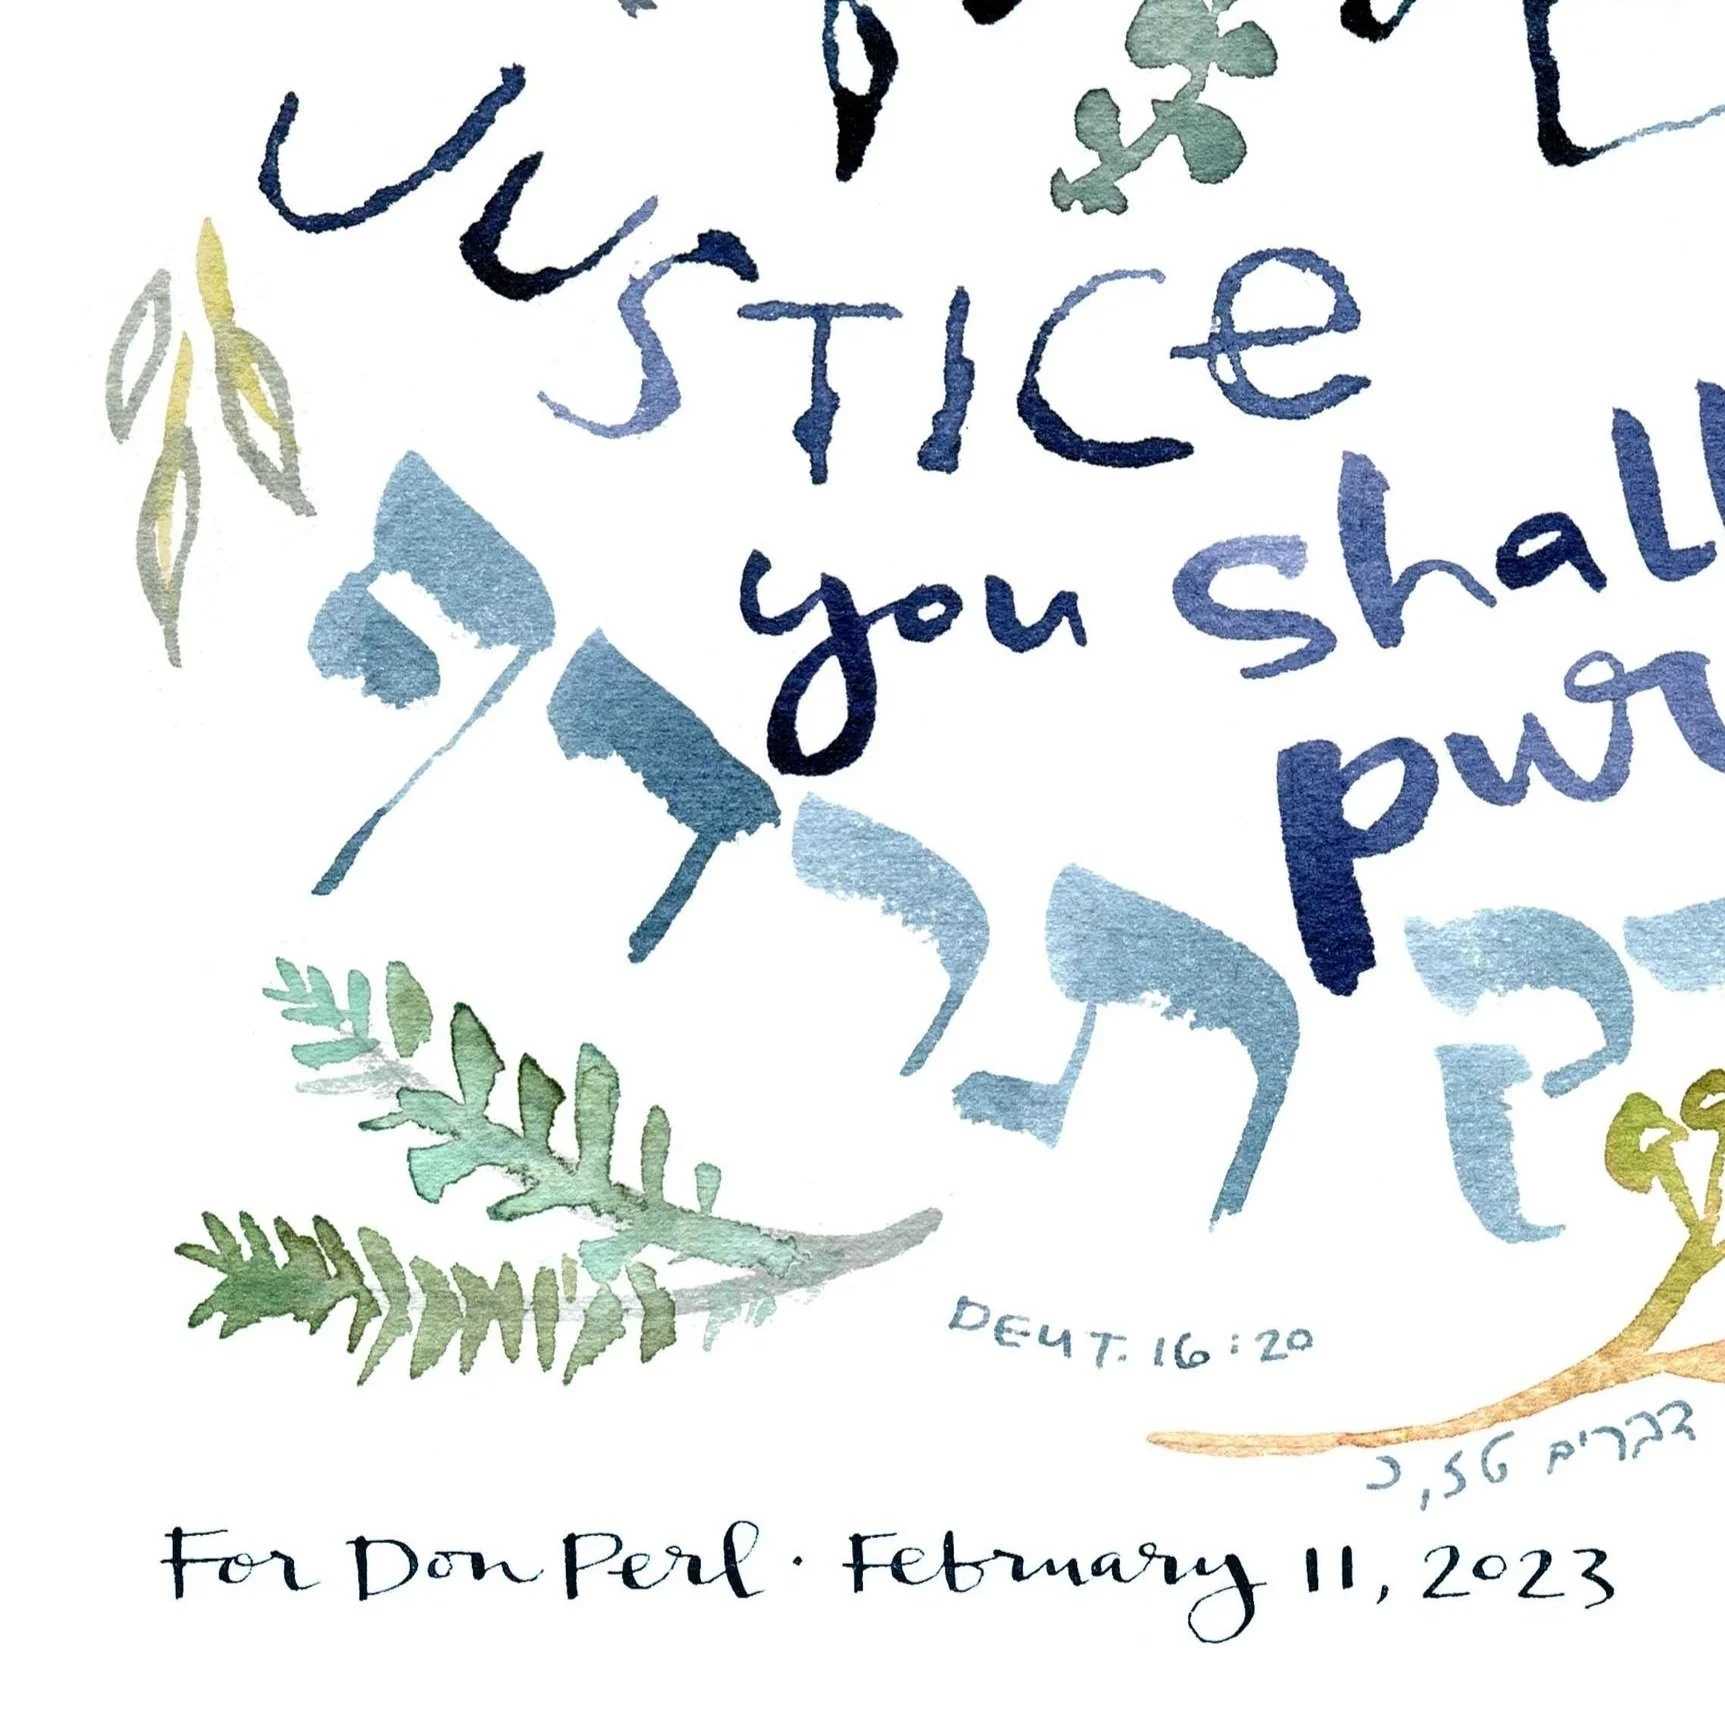 JUSTICe
you shall
pur
תרדף
DEUT. 16:20
דברים טז, כ
For Don Perl · February 11, 2023